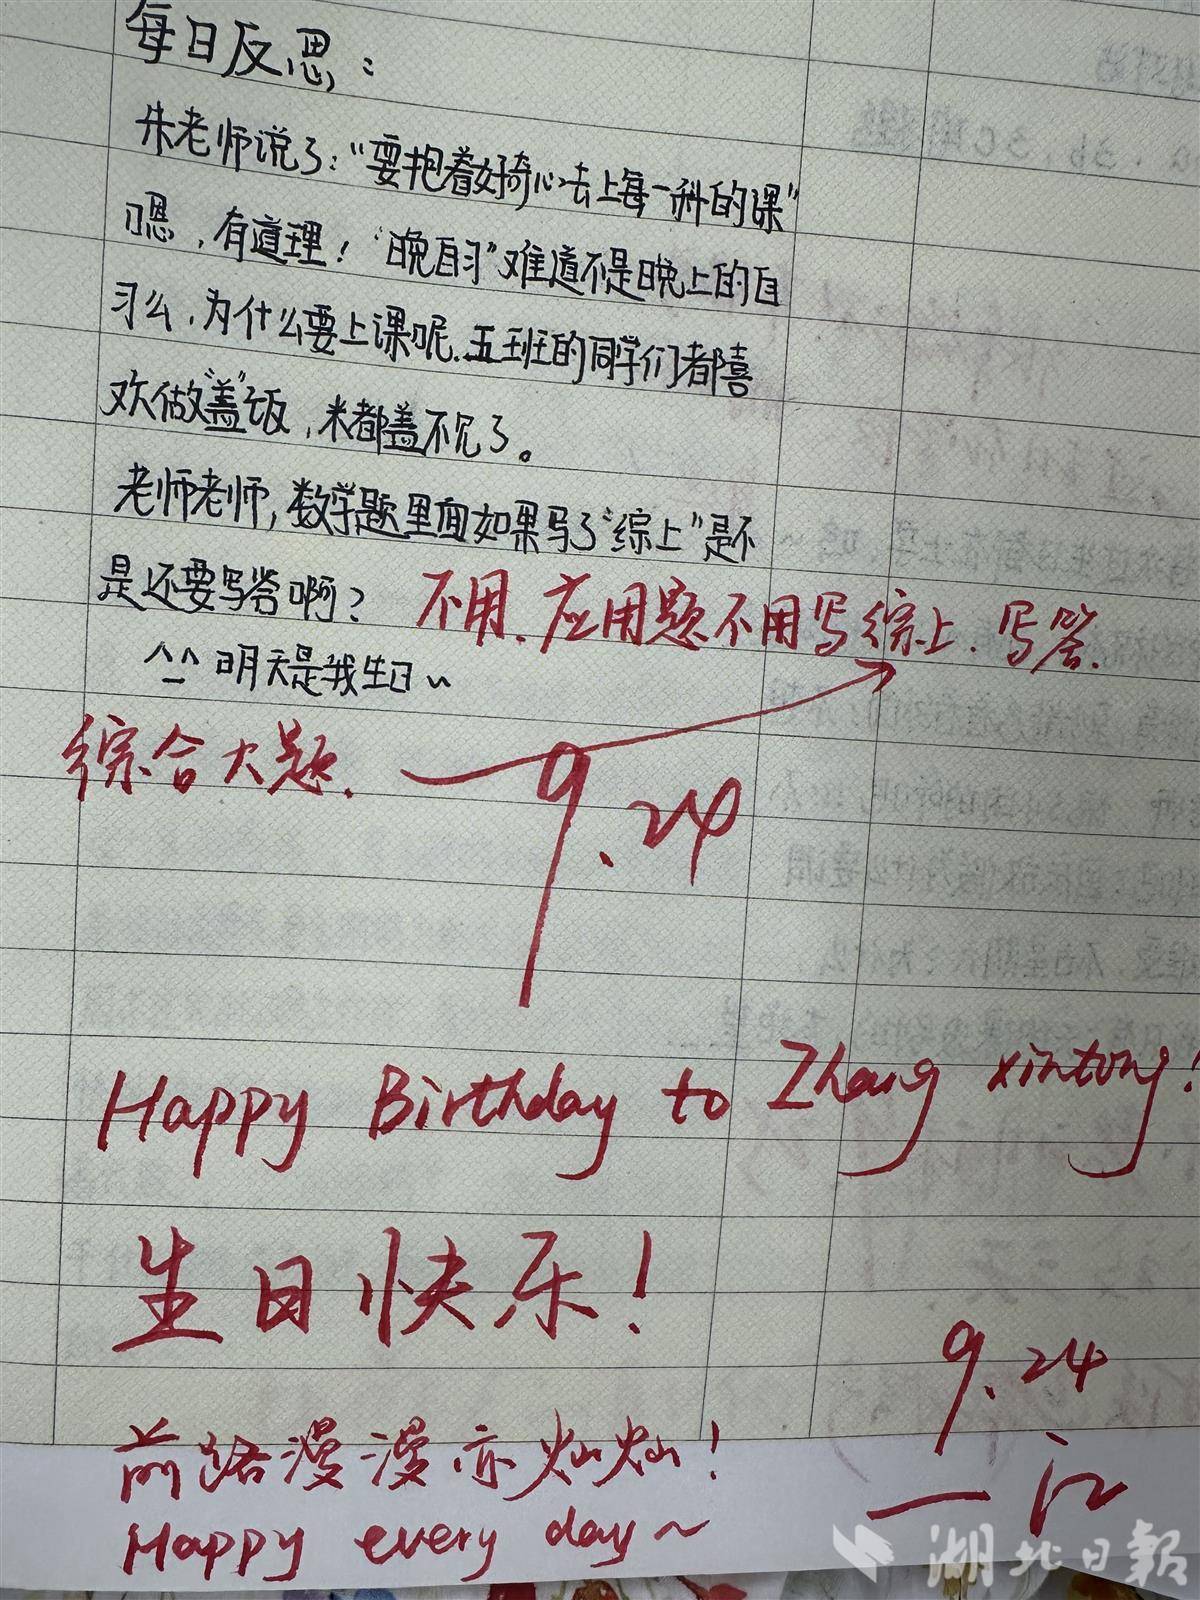 每日反思：
朱老师说了："要抱着好奇心去上每一科的课"
嗯，有道理！"晚自习"难道不是晚上的自
习么，为什么要上课呢．五班的同学们都喜
欢做"盖"饭，米都盖不见了。
老师老师，数学题里面如果写了"综上"是不
是还要写答啊？ 不用．应用题不用写综上．写答．
^_^ 明天是我生日~
综合大题．
9.24
Happy Birthday to Zhang xintong!
生日快乐！
9.24
前路漫漫亦灿灿！
— 江
Happy every day~
湖北日報